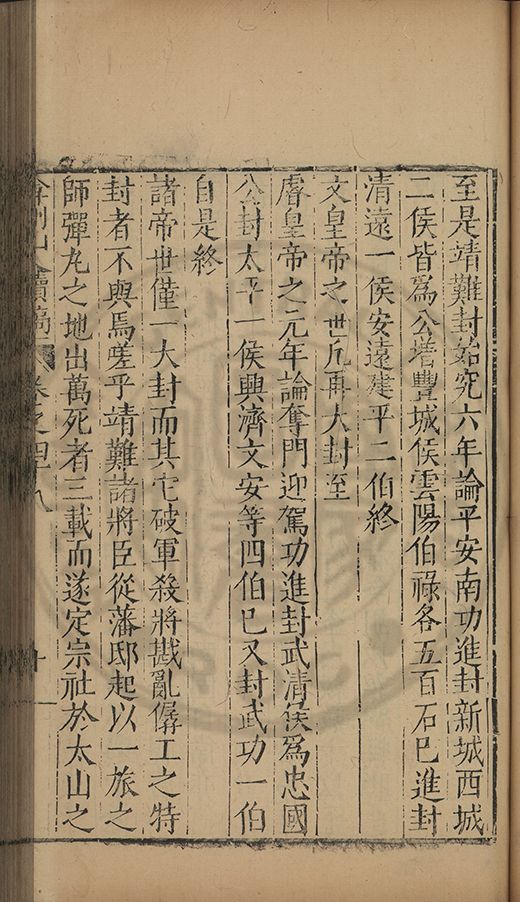 至是靖難封始究六年論平安南功進封新城西城
二侯皆為公增豐城侯雲陽伯祿各五百石已進封
清遠一侯安遠建平二伯終
文皇帝之世凢再大封至
睿皇帝之元年論奪門迎駕功進封武清侯為忠國
公封太平一侯興濟文安等四伯已又封武功一伯
自是終
諸帝世僅一大封而其它破軍殺將戡亂僝工之特
封者不與焉嗟乎靖難諸將臣從藩邸起以一旅之
師彈丸之地出萬死者三載而遂定宗社於太山之
弇州山人續稿 卷之四十八 十一